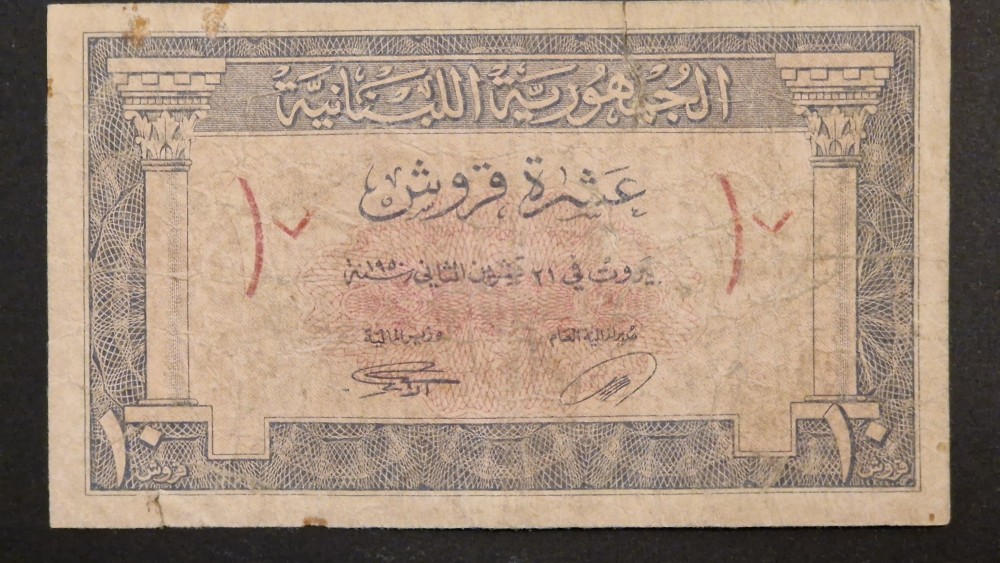 الجُمْهُوريَّة اللبْنَانيَّة
عَشرة قروش
١٠ ١٠
بيَروت في ٢١ تشرين الثاني سنة ١٩٥٠
مدير المالية العام
وزير المالية
١٠ قروش
١٠ قروش